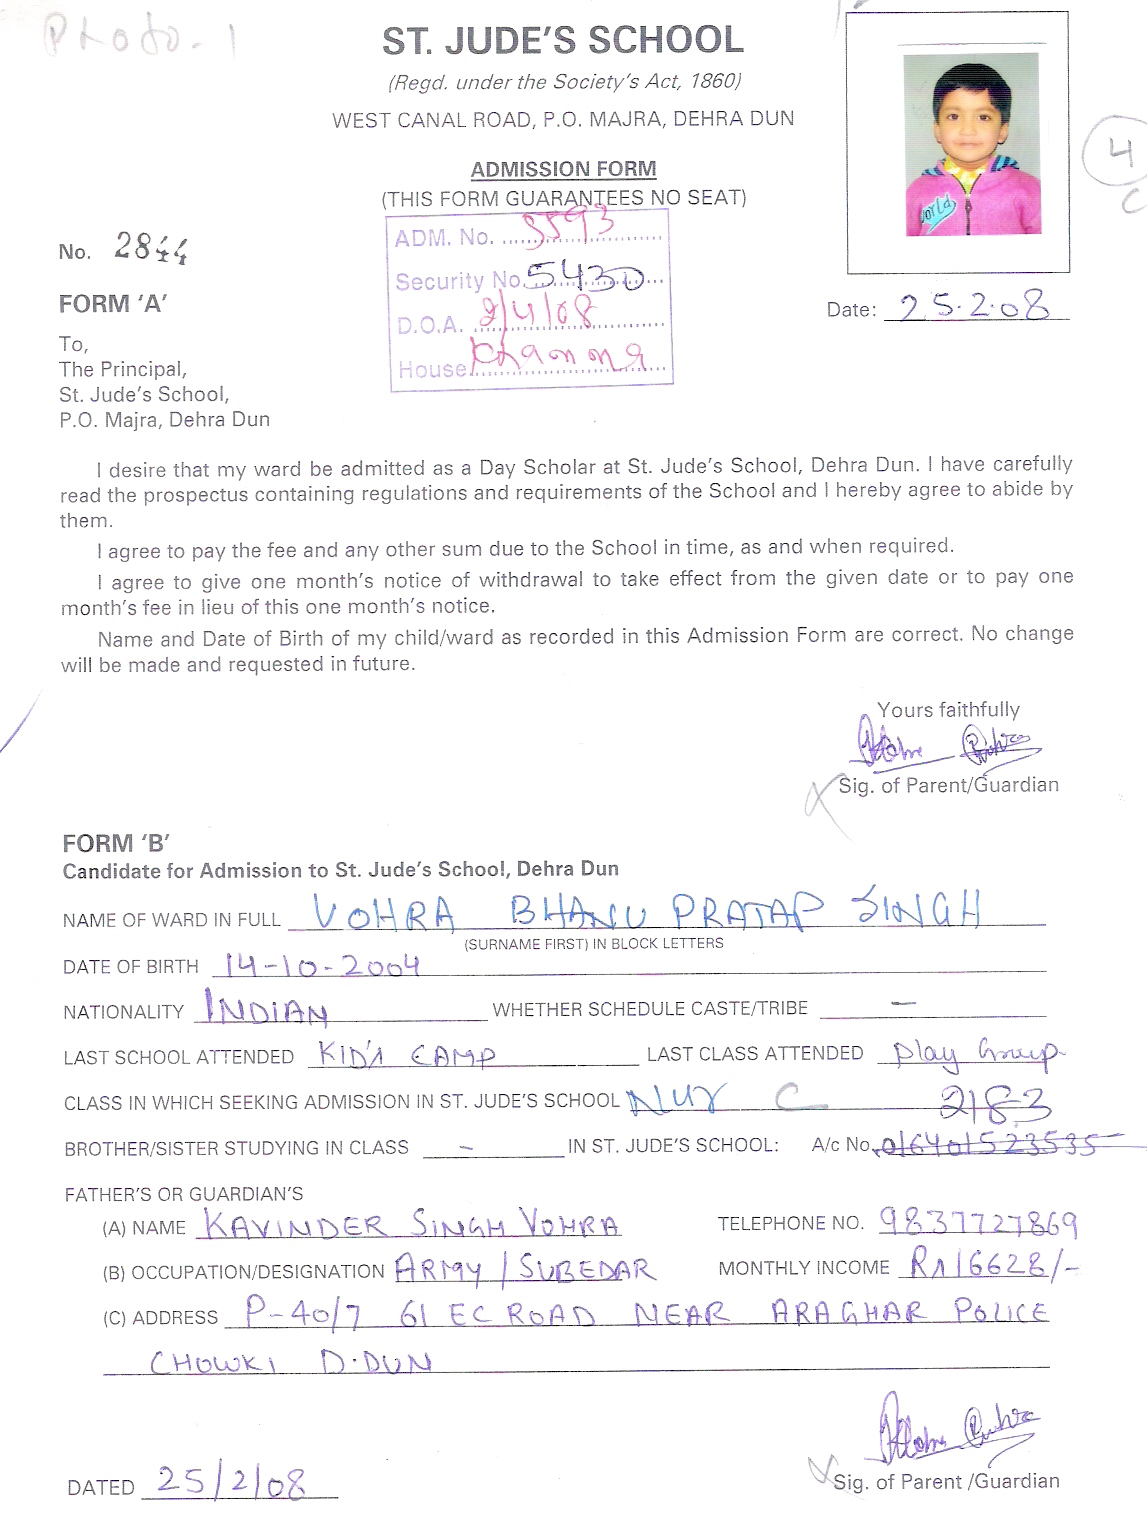 Photo-1
ST. JUDE'S SCHOOL
(Regd. under the Society's Act, 1860)
WEST CANAL ROAD, P.O. MAJRA, DEHRA DUN
ADMISSION FORM
(THIS FORM GUARANTEES NO SEAT)
4
C
No. 2844
ADM. No. 5593
Security No. 5430
D.O.A. 2/4/08
House
world
Date: 25.2.08
FORM 'A'
To,
The Principal,
St. Jude's School,
P.O. Majra, Dehra Dun
I desire that my ward be admitted as a Day Scholar at St. Jude's School, Dehra Dun. I have carefully
read the prospectus containing regulations and requirements of the School and I hereby agree to abide by
them.
I agree to pay the fee and any other sum due to the School in time, as and when required.
I agree to give one month's notice of withdrawal to take effect from the given date or to pay one
month's fee in lieu of this one month's notice.
Name and Date of Birth of my child/ward as recorded in this Admission Form are correct. No change
will be made and requested in future.
Yours faithfully
Sig. of Parent/Guardian
FORM 'B'
Candidate for Admission to St. Jude's School, Dehra Dun
NAME OF WARD IN FULL VOHRA BHANU PRATAP SINGH
(SURNAME FIRST) IN BLOCK LETTERS
DATE OF BIRTH 14-10-2004
NATIONALITY INDIAN WHETHER SCHEDULE CASTE/TRIBE —
LAST SCHOOL ATTENDED KID'S CAMP LAST CLASS ATTENDED Play Group
CLASS IN WHICH SEEKING ADMISSION IN ST. JUDE'S SCHOOL NUR C 2183
BROTHER/SISTER STUDYING IN CLASS - IN ST. JUDE'S SCHOOL: A/c No. 016401523535
FATHER'S OR GUARDIAN'S
(A) NAME KAVINDER SINGH VOHRA TELEPHONE NO. 9837727869
(B) OCCUPATION/DESIGNATION ARMY / SUBEDAR MONTHLY INCOME Rs 16628/-
(C) ADDRESS P-40/7 61 EC ROAD NEAR ARAGHAR POLICE
CHOWKI D.DUN
DATED 25/2/08
Sig. of Parent /Guardian